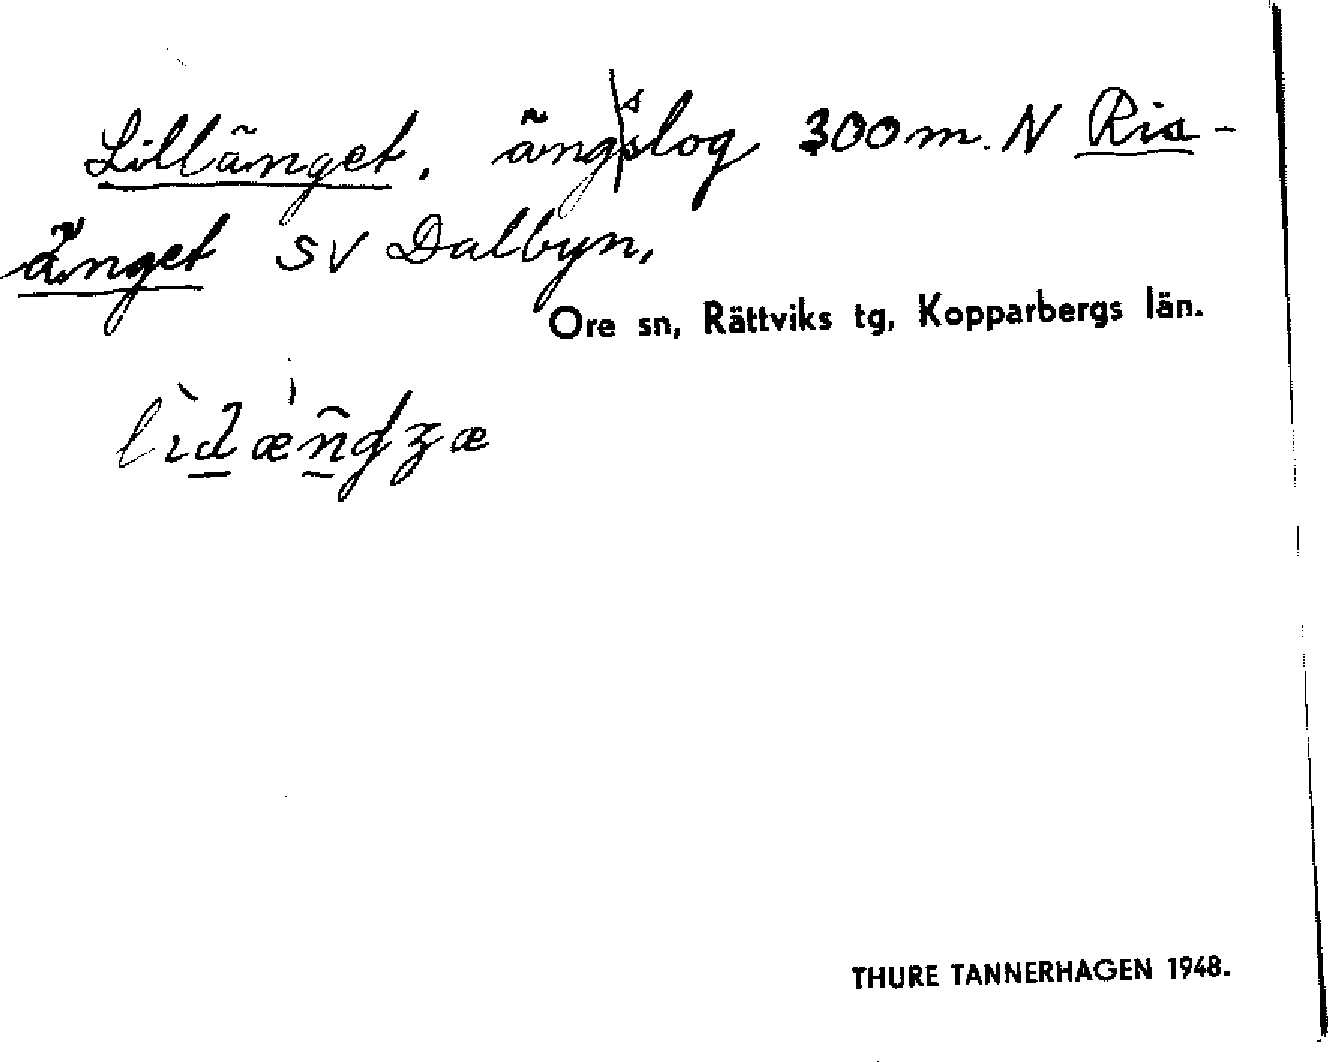 Lillänget, ängslog 300 m. N Ris-
änget SV Dalbyn,
Ore sn, Rättviks tg, Kopparbergs län.
THURE TANNERHAGEN 1948.